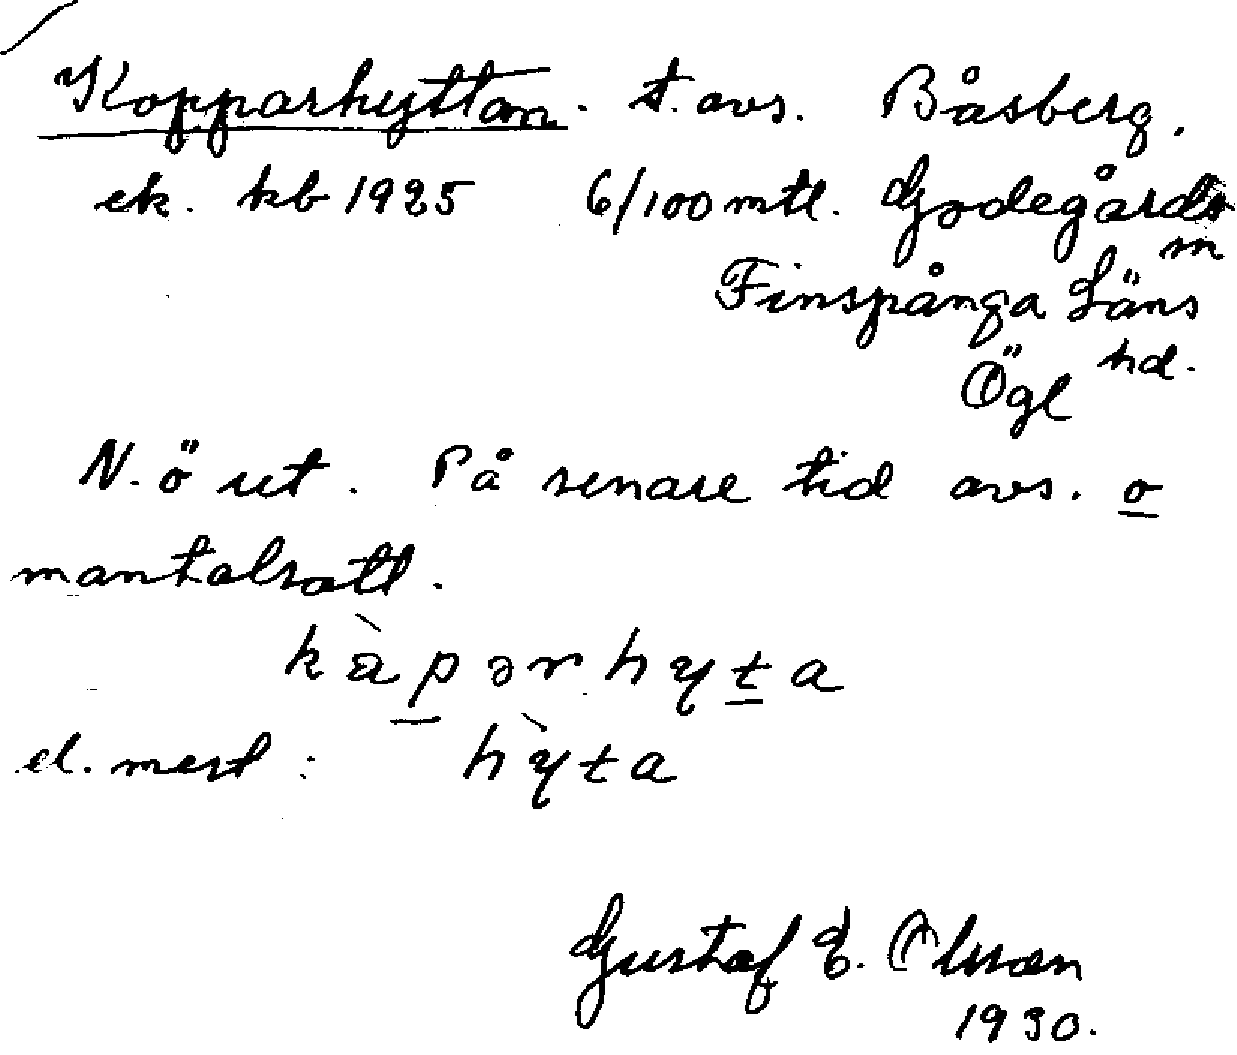 Kopparhyttan. t. avs. Båsberg.
ek. kb 1925 6/100 mtl. Godegårds
sn
Finspånga Läns
hd.
Ögl
N. ö ut. På senare tid avs. o
mantalsatt.
kàpərhyta
el. mest: hỳta
Gustaf E. Olsson
1930.